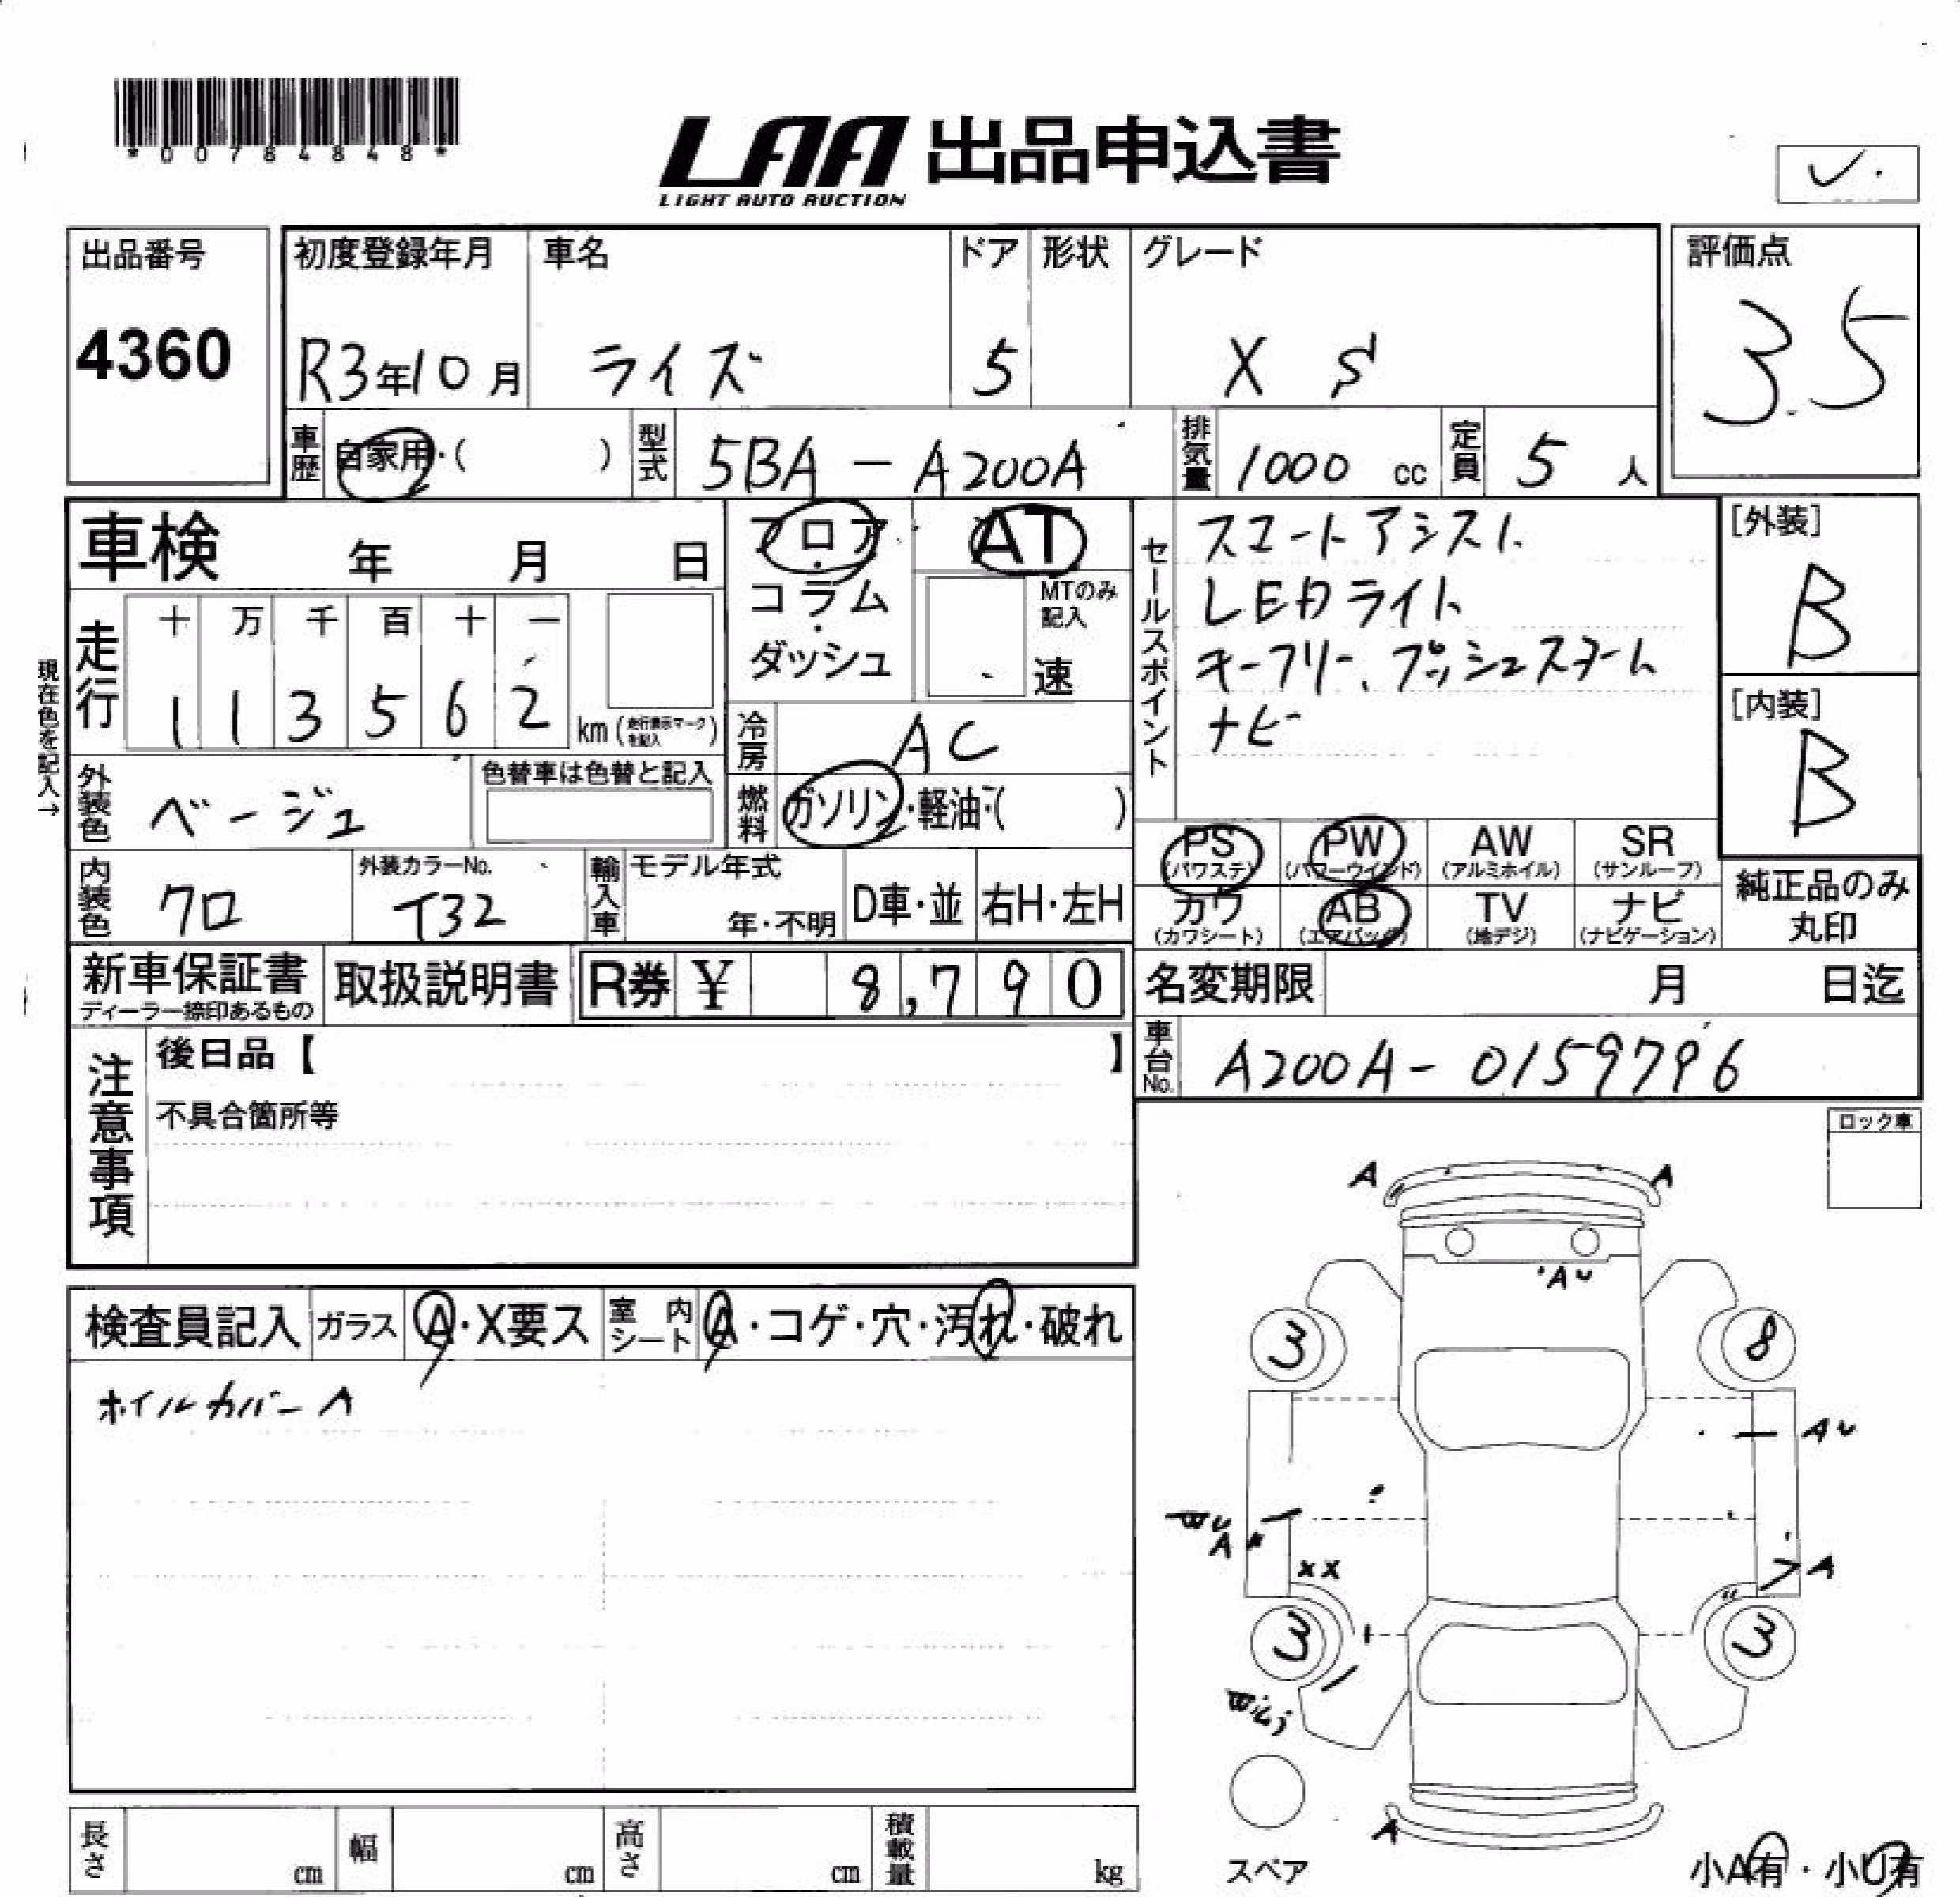 *00784848*
LAA 出品申込書
LIGHT AUTO AUCTION
レ.
出品番号
4360
初度登録年月
R3年10月
車名
ライズ
ドア
5
形状
グレード
X S
評価点
3.5
車歴
自家用・( )
型式
5BA-A200A
排気量
1000 cc
定員
5 人
車検 年 月 日
フロア
・
コラム
・
ダッシュ
AT
MTのみ
記入
速
セールスポイント
スマートアシスト
LEDライト
キーフリー、プッシュスタート
ナビ
[外装]
B
[内装]
B
現在色を記入→
走行
十 万 千 百 十 一
1 1 3 5 6 2
km (走行表示マークを記入)
冷房
AC
外装色
ベージュ
色替車は色替と記入
燃料
ガソリン・軽油・( )
PS
(パワステ)
PW
(パワーウインド)
AW
(アルミホイル)
SR
(サンルーフ)
カワ
(カワシート)
AB
(エアバッグ)
TV
(地デジ)
ナビ
(ナビゲーション)
純正品のみ
丸印
内装色
クロ
外装カラーNo.
T32
輸入車
モデル年式
年・不明
D車・並
右H・左H
新車保証書
ディーラー捺印あるもの
取扱説明書
R券 ¥ 8,790
名変期限 月 日迄
車台No.
A200A-0159796
注意事項
後日品【 】
不具合箇所等
ロック車
検査員記入
ガラス
A・X要ス
室内シート
A・コゲ・穴・汚れ・破れ
ホイルカバーA
A
A
AU
3
8
AU
A
XX
A
3
3
A
スペア
小A有・小U有
長さ cm
幅 cm
高さ cm
積載量 kg